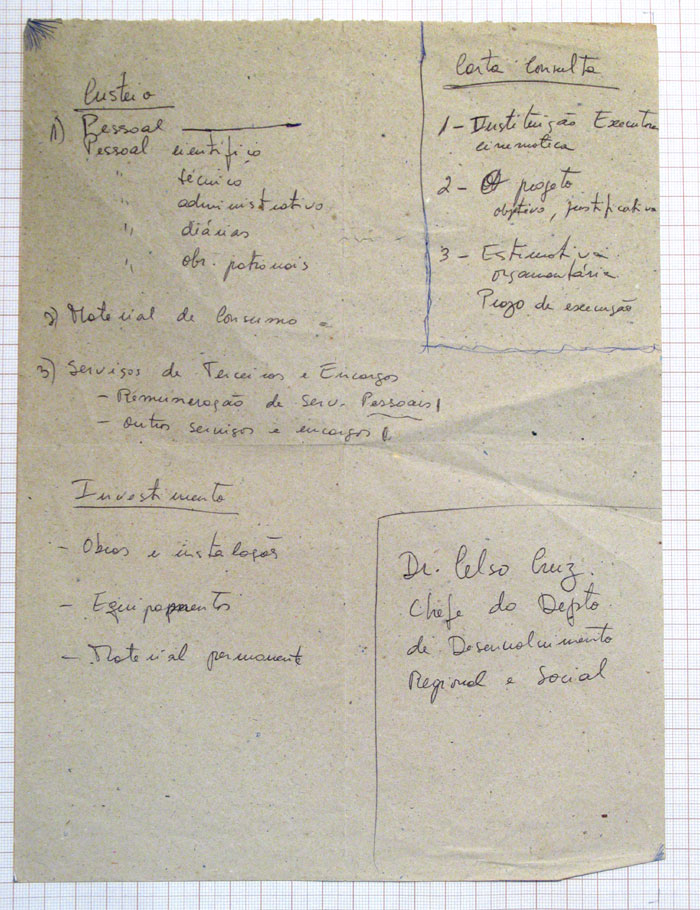 Custeio
1) Pessoal
Pessoal científico
" técnico
" administrativo
" diárias
" obr. patronais
2) Material de Consumo
3) Serviços de Terceiros e Encargos
- Remuneração de Serv. Pessoais
- outros serviços e encargos
Investimento
- Obras e instalações
- Equipamentos
- Material permanente
Carta Consulta
1 - Instituição Executora
cinemateca
2 - O projeto
objetivo, justificativa
3 - Estimativa
orçamentária
Prazo de execução
Dr. Celso Cruz.
Chefe do Depto
de Desenvolvimento
Regional e Social